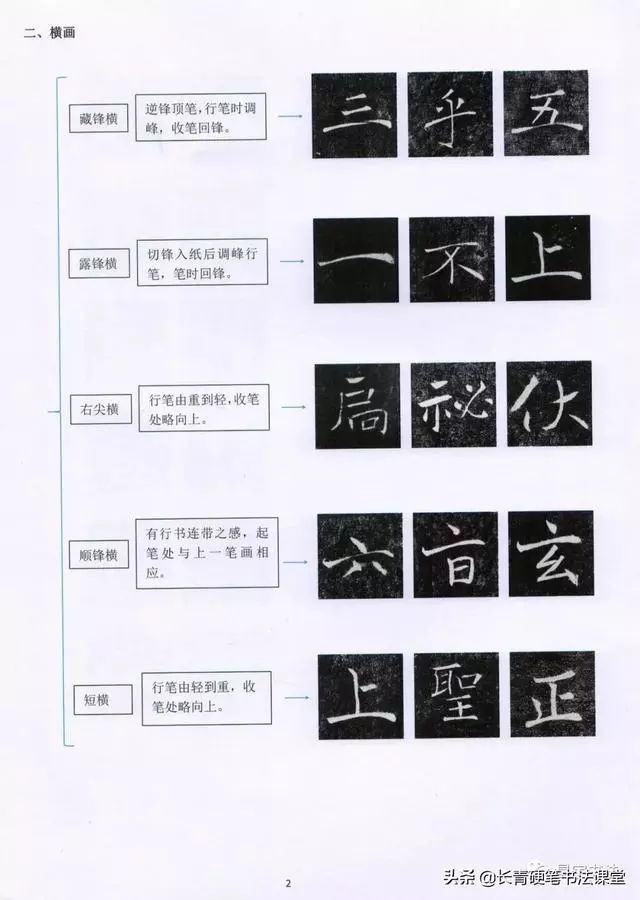 二、横画
藏锋横
逆锋顶笔，行笔时调
峰，收笔回锋。
三 乎 五
露锋横
切锋入纸后调峰行
笔，笔时回锋。
一 不 上
右尖横
行笔由重到轻，收笔
处略向上。
祕 伏
顺锋横
有行书连带之感，起
笔处与上一笔画相
应。
六 玄
短横
行笔由轻到重，收
笔处略向上。
上 聖 正
2
头条 @长青硬笔书法课堂